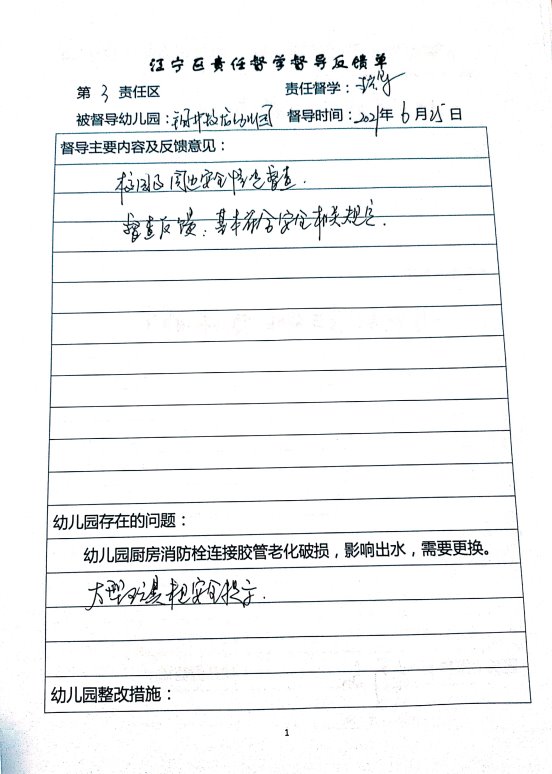 江宁区责任督学督导反馈单
第 3 责任区 责任督学：
被督导幼儿园：幼儿园 督导时间：2021年 6 月 25 日
督导主要内容及反馈意见：
校园及周边安全情况督查.
督查反馈：基本符合安全相关规定.
幼儿园存在的问题：
幼儿园厨房消防栓连接胶管老化破损，影响出水，需要更换。
大型玩具安全提示.
幼儿园整改措施：
1